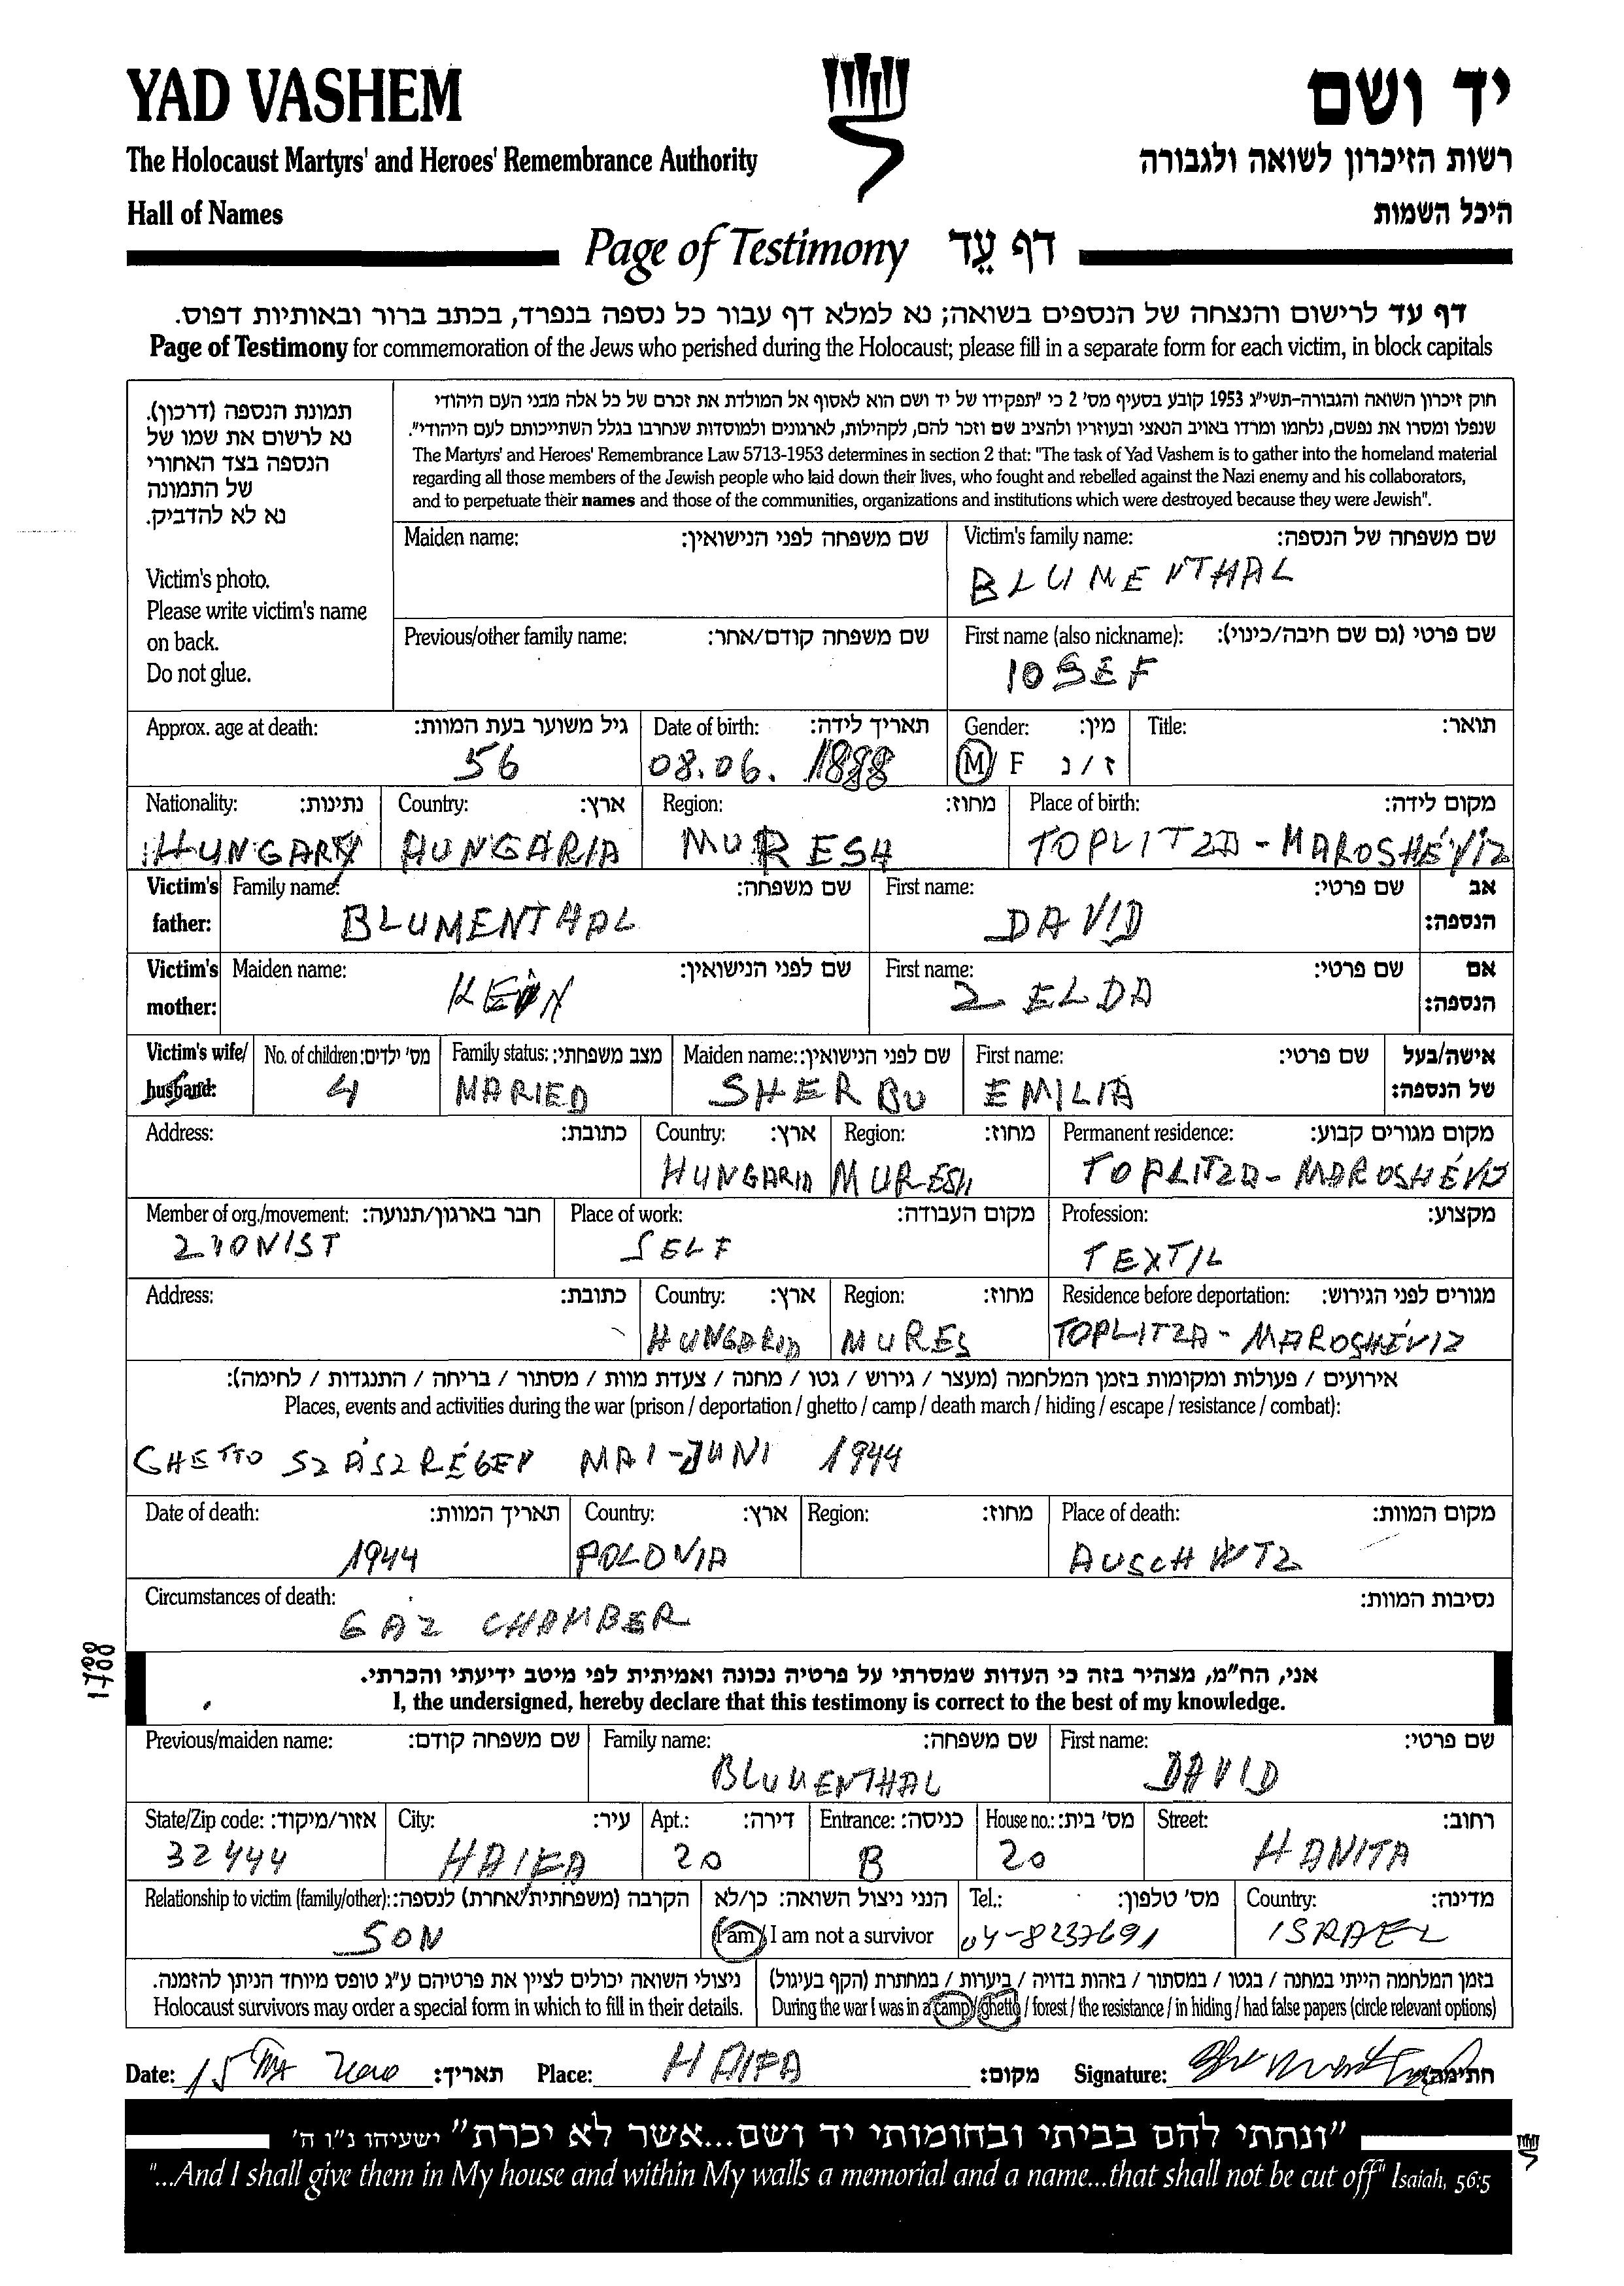 YAD VASHEM
יד ושם
The Holocaust Martyrs' and Heroes' Remembrance Authority
רשות הזיכרון לשואה ולגבורה
Hall of Names
היכל השמות
Page of Testimony דף עֵד
דף עד לרישום והנצחה של הנספים בשואה; נא למלא דף עבור כל נספה בנפרד, בכתב ברור ובאותיות דפוס.
Page of Testimony for commemoration of the Jews who perished during the Holocaust; please fill in a separate form for each victim, in block capitals
תמונת הנספה (דרכון).
נא לרשום את שמו של
הנספה בצד האחורי
של התמונה
נא לא להדביק.
Victim's photo.
Please write victim's name
on back.
Do not glue.
חוק זיכרון השואה והגבורה-תשי"ג 1953 קובע בסעיף מס' 2 כי "תפקידו של יד ושם הוא לאסוף אל המולדת את זכרם של כל אלה מבני העם היהודי
שנפלו ומסרו את נפשם, נלחמו ומרדו באויב הנאצי ובעוזריו ולהציב שם וזכר להם, לקהילות, לארגונים ולמוסדות שנחרבו בגלל השתייכותם לעם היהודי".
The Martyrs' and Heroes' Remembrance Law 5713-1953 determines in section 2 that: "The task of Yad Vashem is to gather into the homeland material
regarding all those members of the Jewish people who laid down their lives, who fought and rebelled against the Nazi enemy and his collaborators,
and to perpetuate their names and those of the communities, organizations and institutions which were destroyed because they were Jewish".
Maiden name: שם משפחה לפני הנישואין: Victim's family name: שם משפחה של הנספה:
BLUMENTHAL
Previous/other family name: שם משפחה קודם/אחר: First name (also nickname): שם פרטי (גם שם חיבה/כינוי):
IOSEF
Approx. age at death: גיל משוער בעת המוות: Date of birth: תאריך לידה: Gender: מין: Title: תואר:
56 08.06. 1888 M/ F ז / נ
Nationality: נתינות: Country: ארץ: Region: מחוז: Place of birth: מקום לידה:
HUNGARY HUNGARIA MURESH TOPLITZA - MAROSHÉVIZ
Victim's father: Family name: שם משפחה: First name: שם פרטי: אב הנספה:
BLUMENTHAL DAVID
Victim's mother: Maiden name: שם לפני הנישואין: First name: שם פרטי: אם הנספה:
ZELDA
Victim's wife/ husband: No. of children: מס' ילדים: Family status: מצב משפחתי: Maiden name: שם לפני הנישואין: First name: שם פרטי: אישה/בעל של הנספה:
4 MARIED SHERBU EMILIA
Address: כתובת: Country: ארץ: Region: מחוז: Permanent residence: מקום מגורים קבוע:
HUNGARIA MURESH TOPLITZA - MAROSHÉVIZ
Member of org./movement: חבר בארגון/תנועה: Place of work: מקום העבודה: Profession: מקצוע:
ZIONIST SELF TEXTIL
Address: כתובת: Country: ארץ: Region: מחוז: Residence before deportation: מגורים לפני הגירוש:
HUNGARIA MURES TOPLITZA - MAROSHÉVIZ
אירועים / פעולות ומקומות בזמן המלחמה (מעצר / גירוש / גטו / מחנה / צעדת מוות / מסתור / בריחה / התנגדות / לחימה):
Places, events and activities during the war (prison / deportation / ghetto / camp / death march / hiding / escape / resistance / combat):
GHETTO SZÁSZRÉGEN MAI-JUNI 1944
Date of death: תאריך המוות: Country: ארץ: Region: מחוז: Place of death: מקום המוות:
1944 POLONIA AUSCHWTZ
Circumstances of death: נסיבות המוות:
GAZ CHAMBER
1788
אני, הח"מ, מצהיר בזה כי העדות שמסרתי על פרטיה נכונה ואמיתית לפי מיטב ידיעתי והכרתי.
I, the undersigned, hereby declare that this testimony is correct to the best of my knowledge.
Previous/maiden name: שם משפחה קודם: Family name: שם משפחה: First name: שם פרטי:
BLUMENTHAL DAVID
State/Zip code: אזור/מיקוד: City: עיר: Apt.: דירה: Entrance: כניסה: House no.: מס' בית: Street: רחוב:
32444 HAIFA 20 B 20 HANITA
Relationship to victim (family/other): הקרבה (משפחתית/אחרת) לנספה: הנני ניצול השואה: כן/לא Tel.: מס' טלפון: Country: מדינה:
SON I am/ I am not a survivor 04-8237691 ISRAEL
ניצולי השואה יכולים לציין את פרטיהם ע"ג טופס מיוחד הניתן להזמנה. בזמן המלחמה הייתי במחנה / בגטו / במסתור / בזהות בדויה / ביערות / במחתרת (הקף בעיגול)
Holocaust survivors may order a special form in which to fill in their details. During the war I was in a camp/ ghetto / forest / the resistance / in hiding / had false papers (circle relevant options)
Date: 15 תאריך: Place: HAIFA מקום: Signature: חתימה:
"ונתתי להם בביתי ובחומותי יד ושם...אשר לא יכרת" ישעיהו נ"ו ה'
"...And I shall give them in My house and within My walls a memorial and a name...that shall not be cut off" Isaiah, 56:5